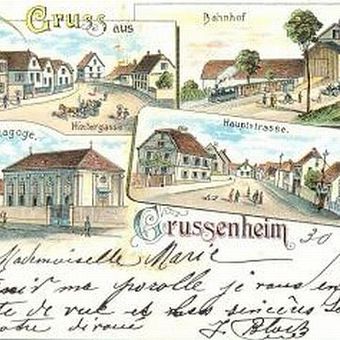 Gruss aus
Bahnhof
Hintergasse
Hauptstrasse.
agoge.
Grussenheim
30
Mademoiselle Marie
ma parolle je vous en
te de vue et les sincères
votre dévoué
J. Bloch